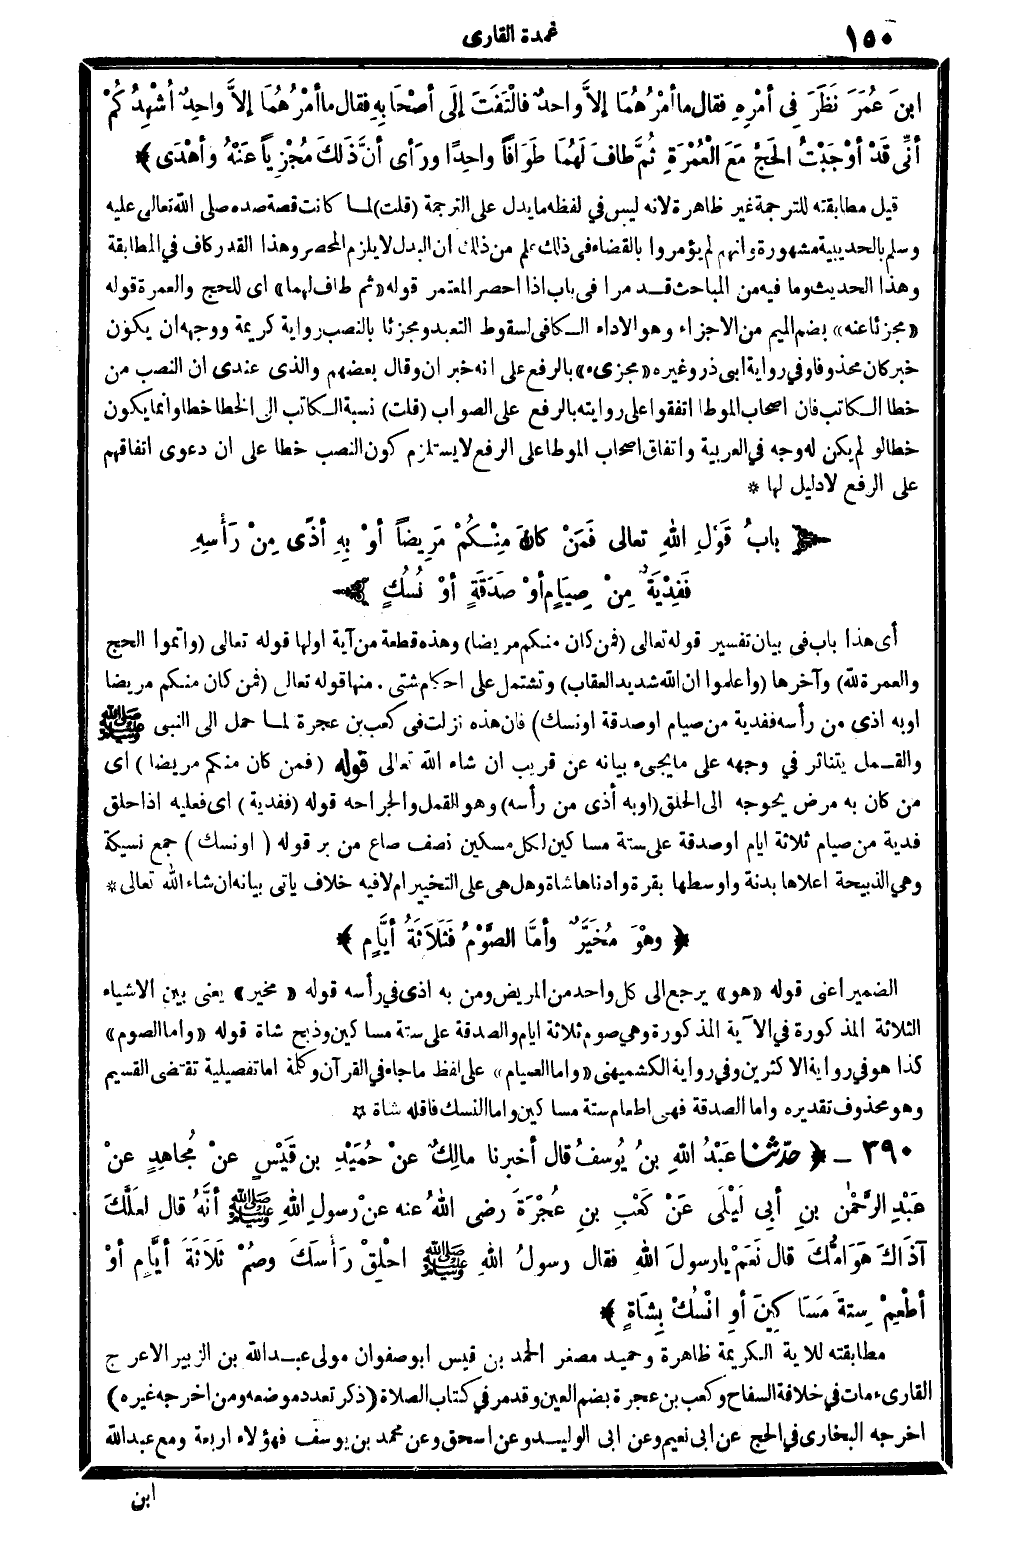 ١٥٠
عمدة القارى
ابنَ عُمَرَ نَظَرَ فِي أَمْرِهِ فقال ما أمْرُهُمَا إلاَّ واحِدٌ فالْتَفَتَ إلَى أصْحَابِهِ فقال ما أمْرُهُمَا إلاَّ واحِدٌ أُشْهِدُكُمْ
أنِّى قَدْ أوْجَبْتُ الحَجَّ مَعَ الْعُمْرَةِ ثُمَّ طافَ لَهُمَا طَوَافاً واحِدًا ورأى أنَّ ذَلِكَ مُجْزِياً عَنْهُ وأهْدَى ﴾
قيل مطابقته للترجمة غير ظاهرة لانه ليس في لفظه ما يدل على الترجمة (قلت) لما كانت قصة صده صلى الله تعالى عليه
وسلم بالحديبية مشهورة وانهم لم يؤمروا بالقضاء فى ذلك علم من ذلك ان البدل لا يلزم المحصر وهذا القدر كاف في المطابقة
وهذا الحديث وما فيه من المباحث قد مرا فى باب اذا احصر المعتمر قوله «ثم طاف لهما» اى للحج والعمرة قوله
«مجزئا عنه» بضم الميم من الاجزاء وهو الاداء الكافى لسقوط التعبد ومجزئا بالنصب رواية كريمة ووجهه ان يكون
خبر كان محذوفا وفي رواية ابى ذر وغيره «مجزىء» بالرفع على انه خبر ان وقال بعضهم والذى عندى ان النصب من
خطا الكاتب فان اصحاب الموطا اتفقوا على روايته بالرفع على الصواب (قلت) نسبة الكاتب الى الخطا خطا وانما يكون
خطا لو لم يكن له وجه في العربية واتفاق اصحاب الموطا على الرفع لا يستلزم كون النصب خطا على ان دعوى اتفاقهم
على الرفع لا دليل لها *
﴿ بابُ قَوْلِ اللهِ تعالى فَمَنْ كانَ مِنْكُمْ مَرِيضاً أوْ بِهِ أذًى مِنْ رَأْسِهِ
فَفِدْيَةٌ مِنْ صِيَامٍ أوْ صَدَقَةٍ أوْ نُسُكٍ ﴾
أى هذا باب فى بيان تفسير قوله تعالى (فمن كان منكم مريضا) وهذه قطعة من آية اولها قوله تعالى (واتموا الحج
والعمرة لله) وآخرها (واعلموا ان الله شديد العقاب) وتشتمل على احكام شتى . منها قوله تعالى (فمن كان منكم مريضا
او به اذى من رأسه ففدية من صيام او صدقة او نسك) فان هذه نزلت فى كعب بن عجرة لما حمل الى النبى ﷺ
والقمل يتناثر في وجهه على ما يجىء بيانه عن قريب ان شاء الله تعالى قوله (فمن كان منكم مريضا) اى
من كان به مرض يحوجه الى الحلق (او به أذى من رأسه) وهو القمل والجراحه قوله (ففدية) اى فعليه اذا حلق
فدية من صيام ثلاثة ايام او صدقة على ستة مساكين لكل مسكين نصف صاع من بر قوله (او نسك) جمع نسيكة
وهي الذبيحة اعلاها بدنة واوسطها بقرة وادناها شاة وهل هى على التخيير ام لا فيه خلاف ياتى بيانه ان شاء الله تعالى *
﴿ وهْوَ مُخَيَّرٌ وأمَّا الصَّوْمُ فَثَلاَثَةُ أيَّامٍ ﴾
الضمير اعنى قوله «هو» يرجع الى كل واحد من المريض ومن به اذى في رأسه قوله «مخير» يعنى بين الاشياء
الثلاثة المذكورة في الآية المذكورة وهي صوم ثلاثة ايام والصدقة على ستة مساكين وذبح شاة قوله «واما الصوم»
كذا هو في رواية الاكثرين وفي رواية الكشميهنى «واما الصيام» على لفظ ما جاء في القرآن وكلمة اما تفصيلية تقتضى القسيم
وهو محذوف تقديره واما الصدقة فهى اطعام ستة مساكين واما النسك فاقله شاة *
٣٩٠ – ﴿ حدّثنا عَبْدُ اللهِ بنُ يُوسُفَ قال أخبرنا مالِكٌ عنْ حُمَيْدِ بن قَيْسٍ عنْ مُجاهِدٍ عنْ
عَبْدِ الرَّحْمٰنِ بنِ أبِي لَيْلَى عَنْ كَعْبِ بنِ عُجْرَةَ رضى اللهُ عنه عنْ رسولِ اللهِ ﷺ أنَّهُ قال لعَلَّكَ
آذَاكَ هَوَامُّكَ قال نَعَمْ يا رسولَ اللهِ فقال رسولُ اللهِ ﷺ احْلِقْ رَأسَكَ وصُمْ ثَلاَثَةَ أيَّامٍ أوْ
أطْعِمْ سِتةَ مَسَاكِينَ أوِ انْسُكْ بِشَاةٍ ﴾
مطابقته للآية الكريمة ظاهرة وحميد مصغر الحمد بن قيس ابو صفوان مولى عبد الله بن الزبير الاعرج
القارىء مات في خلافة السفاح وكعب بن عجرة بضم العين وقد مر في كتاب الصلاة (ذكر تعدد موضعه ومن اخرجه غيره)
اخرجه البخارى في الحج عن ابى نعيم وعن ابى الوليد وعن اسحق وعن محمد بن يوسف فهؤلاء اربعة ومع عبد الله
ابن